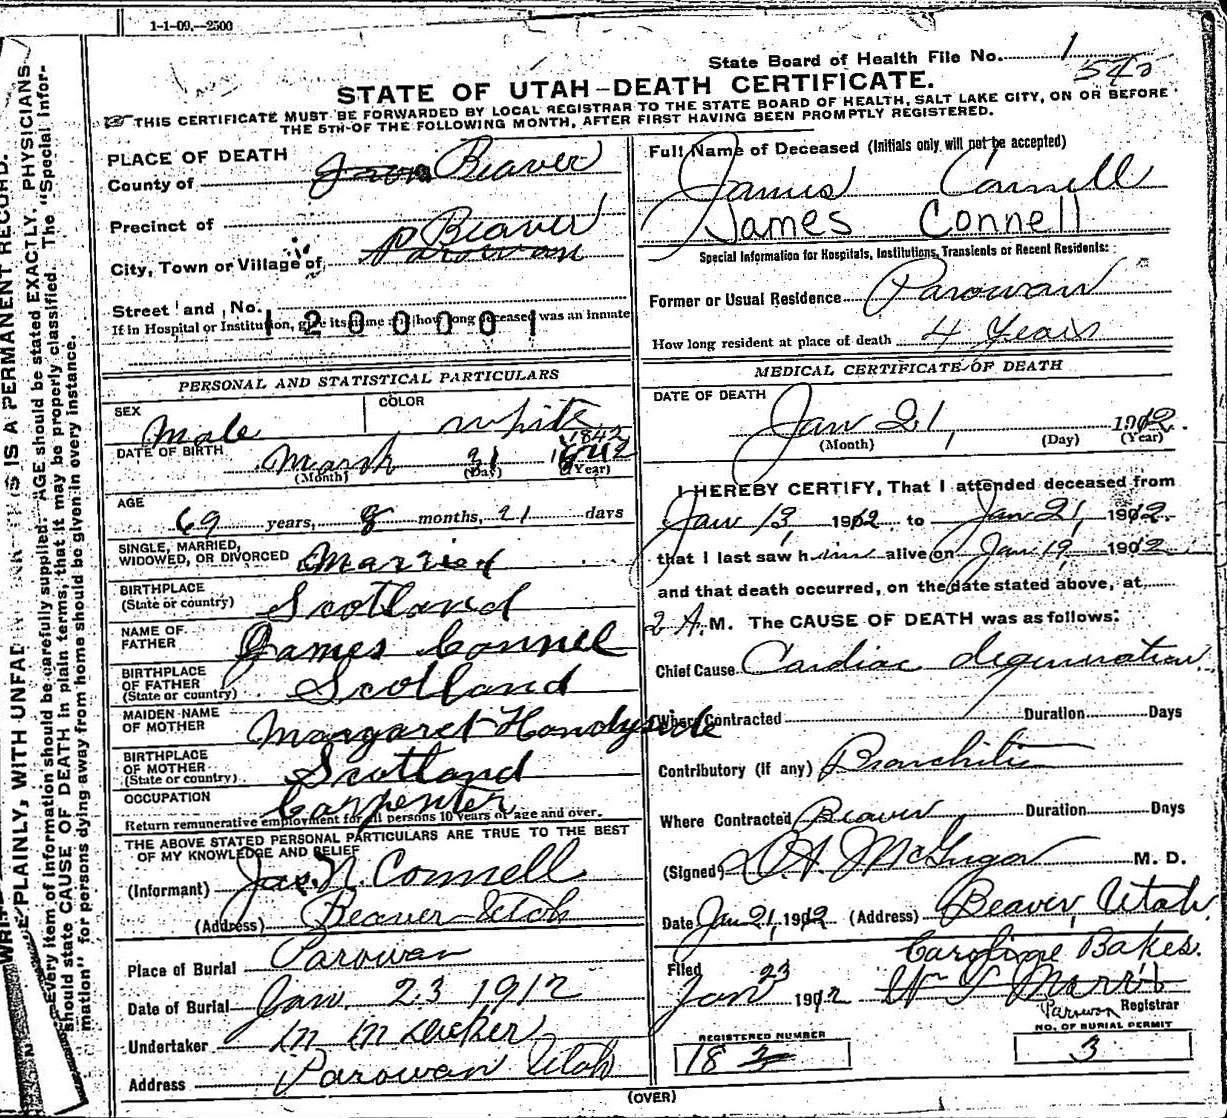 1-1-09.--2500
State Board of Health File No. 1
545
STATE OF UTAH-DEATH CERTIFICATE.
THIS CERTIFICATE MUST BE FORWARDED BY LOCAL REGISTRAR TO THE STATE BOARD OF HEALTH, SALT LAKE CITY, ON OR BEFORE
THE 5TH OF THE FOLLOWING MONTH, AFTER FIRST HAVING BEEN PROMPTLY REGISTERED.
PLACE OF DEATH
County of Iron Beaver
Precinct of Beaver
City, Town or Village of Parowan
Street and No.
If in Hospital or Institution, give its name and how long deceased was an inmate
1200001
PERSONAL AND STATISTICAL PARTICULARS
SEX Male COLOR white
1842
DATE OF BIRTH March 31 1842
(Month) (Day) (Year)
AGE 69 years, 8 months, 21 days
SINGLE, MARRIED,
WIDOWED, OR DIVORCED Married
BIRTHPLACE
(State or country) Scotland
NAME OF
FATHER James Connel
BIRTHPLACE
OF FATHER
(State or country) Scotland
MAIDEN NAME
OF MOTHER Margaret Handyside
BIRTHPLACE
OF MOTHER
(State or country) Scotland
OCCUPATION Carpenter
Return remunerative employment for all persons 10 years of age and over.
THE ABOVE STATED PERSONAL PARTICULARS ARE TRUE TO THE BEST
OF MY KNOWLEDGE AND BELIEF
(Informant) Jas. N. Connell
(Address) Beaver Utah
Place of Burial Parowan
Date of Burial Jan. 23 1912
Undertaker M M Decker
Address Parowan Utah
Full Name of Deceased (Initials only will not be accepted)
James Connell
James Connell
Special Information for Hospitals, Institutions, Transients or Recent Residents:
Former or Usual Residence Parowan
How long resident at place of death 4 Years
MEDICAL CERTIFICATE OF DEATH
DATE OF DEATH
Jan 21, 1912.
(Month) (Day) (Year)
I HEREBY CERTIFY, That I attended deceased from
Jan 13 1912 to Jan 21, 1912.
that I last saw him alive on Jan 19 1912
and that death occurred, on the date stated above, at
2 A. M. The CAUSE OF DEATH was as follows:
Chief Cause Cardiac degeneration
Where Contracted Duration Days
Contributory (If any) Bronchitis
Where Contracted Beaver Duration Days
(Signed) McGregor M. D.
Date Jan 21, 1912 (Address) Beaver, Utah.
Caroline Bakes.
Filed Jan 23 1912 Parowan Registrar
REGISTERED NUMBER
18
NO. OF BURIAL PERMIT
3
(OVER)
IS A PERMANENT RECORD.
PLAINLY, WITH UNFAD
Every item of information should be carefully supplied. AGE should be stated EXACTLY. PHYSICIANS
should state CAUSE OF DEATH in plain terms, that it may be properly classified. The "Special Infor-
mation" for persons dying away from home should be given in every instance.